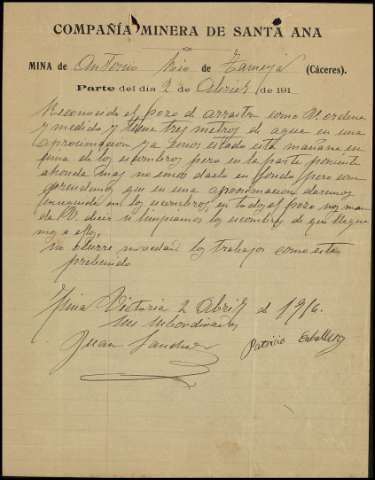 COMPAÑÍA MINERA DE SANTA ANA
MINA de Antonio Mio de (Cáceres).
Parte del día 2 de Abril de 191
Reconocido el pozo de arrastre como V. ordena
y medido y tiene tres metros de agua en una
aproximacion ya emos estado esta mañana en
sima de los escombros pero en la parte poniente
ahonda mas no emos dado en fondo pero com
prendemos que en una aproximacion daremos
en los escombros en todo el pozo nos man
da V. decir si limpiamos los escombros de que llegue
mos a ellos,
no ocurre novedad los trabajos como esta
prebenido
Mina Victoria 2 Abril de 1916.
sus subordinados
Juan Sanchez Patricio Caballero